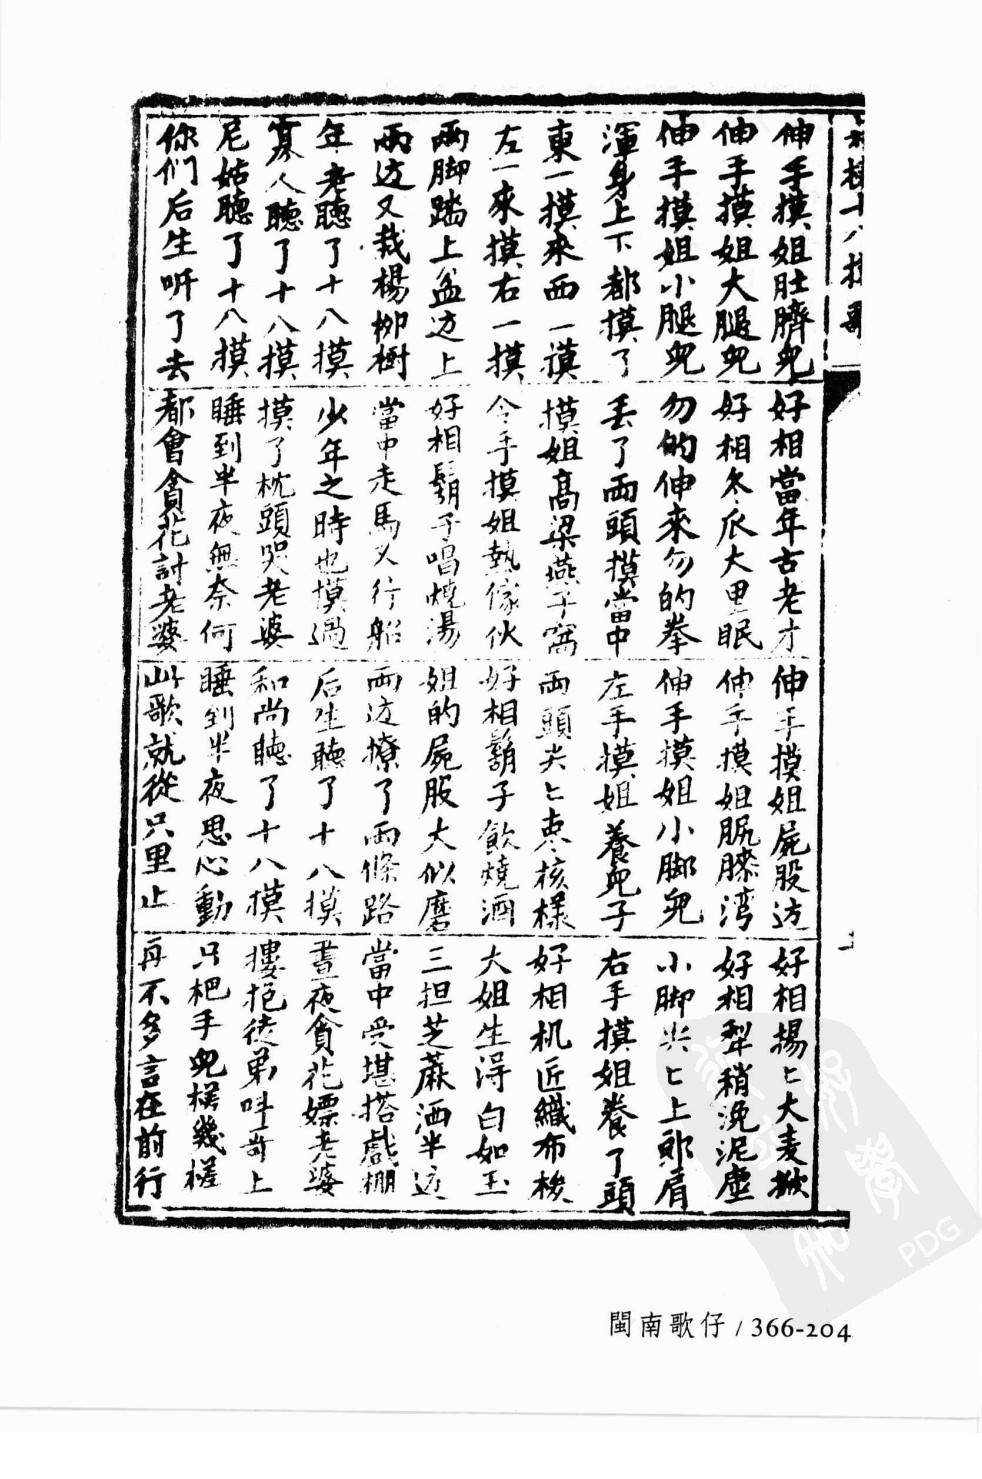 伸手摸姐肚臍兒 好相當年古老才 伸手摸姐屍股边 好相揚匕大麦掀
伸手摸姐大腿兒 好相冬瓜大里眠 伸手摸姐膝湾 好相犁稍浼泥塵
伸手摸姐小腿兒 勿的伸來勿的拳 伸手摸姐小脚兒 小脚尖匕上郎肩
渾身上下都摸了 丢了両頭摸當中 左手摸姐養兒子 右手摸姐養了頭
東一摸來西一摸 摸姐髙梁燕子窩 両頭尖匕枣核樣 好相机匠織布梭
左一來摸右一摸 令手摸姐熱傢伙 好相鬍子飲燒酒 大姐生淂白如玉
両脚踏上盆边上 好相鬍子唱燒湯 姐的屍股大似磨 三担芝蔴洒半边
両边又栽楊柳樹 當中走馬又行船 両边撩了両條路 當中受堪搭戯棚
年老聽了十八摸 少年之時也摸過 后生聽了十八摸 晝夜貪花嫖老婆
寡人聽了十八摸 摸了枕頭哭老婆 和尚聽了十八摸 摟抱徒弟呌哥上
尼姑聽了十八摸 睡到半夜無奈何 睡到半夜思心動 只杷手兒搓幾搓
你们后生听了去 都會貪花討老婆 山歌就從只里止 再不多言在前行
閩南歌仔 / 366-204
PDG